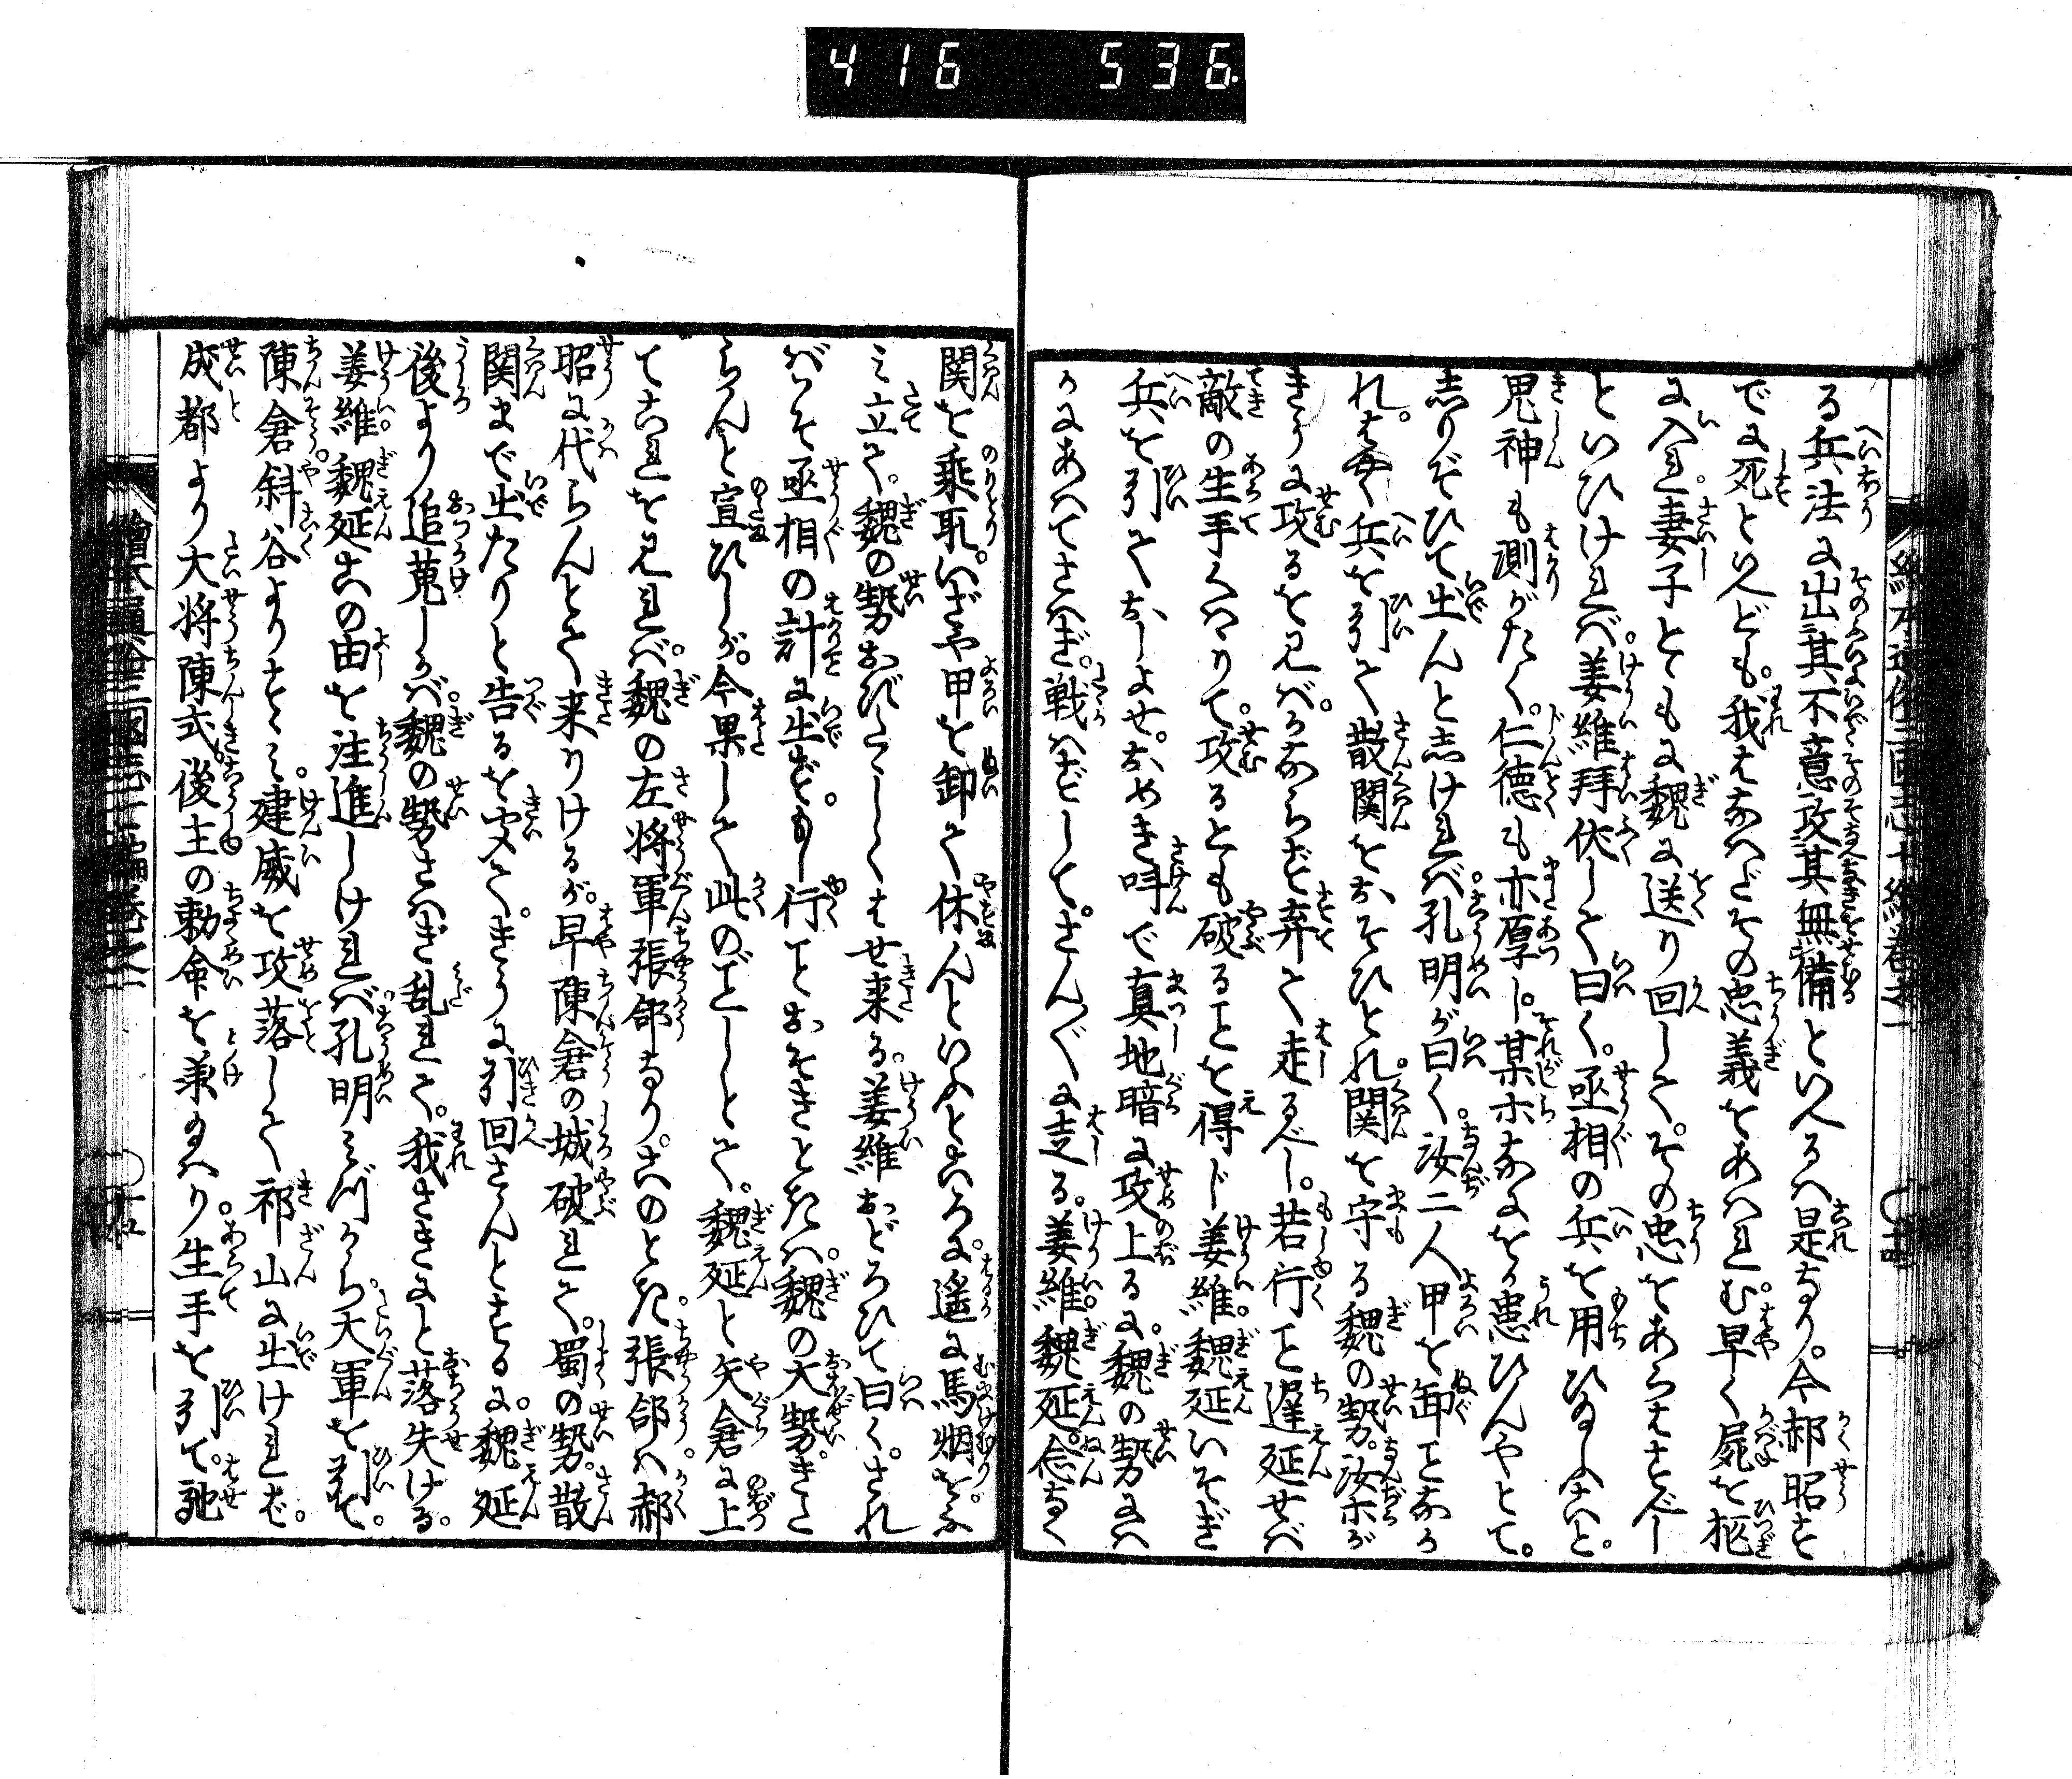 416 536.
る兵法に出其不意攻其無備といへるハ是なり。今郝昭す
でに死といへども。我もなハだその忠義をあハれむ。早く屍を柩
に入れ。妻子とゝもに魏に送り回して。その忠をあらハすべし
といひけれバ。姜維拝伏して曰く。丞相の兵を用ひ給ふこと。
鬼神も測がたく。仁徳も亦厚し。某ホなにをか患ひんやとて。
志りぞひて出んと志けれバ。孔明が曰く。汝二人甲を卸ことなか
れ。はやく兵を引て散関をおそひとれ。関を守る魏の勢。汝ホが
きうに攻るを見バ。かならず弃て走るべし。若行こと遅延せバ
敵の生手くハゝりて。攻るとも破ることを得じ姜維。魏延いそぎ
兵を引ておしよせ。おめき叫で真地暗に攻上るに。魏の勢にハ
かにあハてさハぎ。戦ハずして。さんぐに走る。姜維。魏延。念なく
関を乗取。いざや甲を卸て休んといふところに。遥に馬烟をふ
ミ立て。魏の勢おびたゞしくはせ来る。姜維おどろひて曰く。され
バこそ丞相の計に出ず。もし行ことおそきときハ。魏の大勢。きた
らんと宣ひしが。今果して此のごとしとて。魏延と矢倉に上
てこれを見れバ。魏の左将軍張郃なり。このとき。張郃ハ郝
昭に代らんとて来りけるが。早陳倉の城破れて。蜀の勢。散
関まで出たりと告るを聞て。きうに引回さんとするに。魏延
後より追蒐しかバ。魏の勢さハぎ乱れて。我さきにと落失ける。
姜維。魏延この由を注進しけれバ。孔明ミづから。大軍を引て。
陳倉斜谷よりすゝミ。建威を攻落して祁山に出けれバ。
成都より大将陳式。後主の勅命を承給ハり。生手を引て。馳